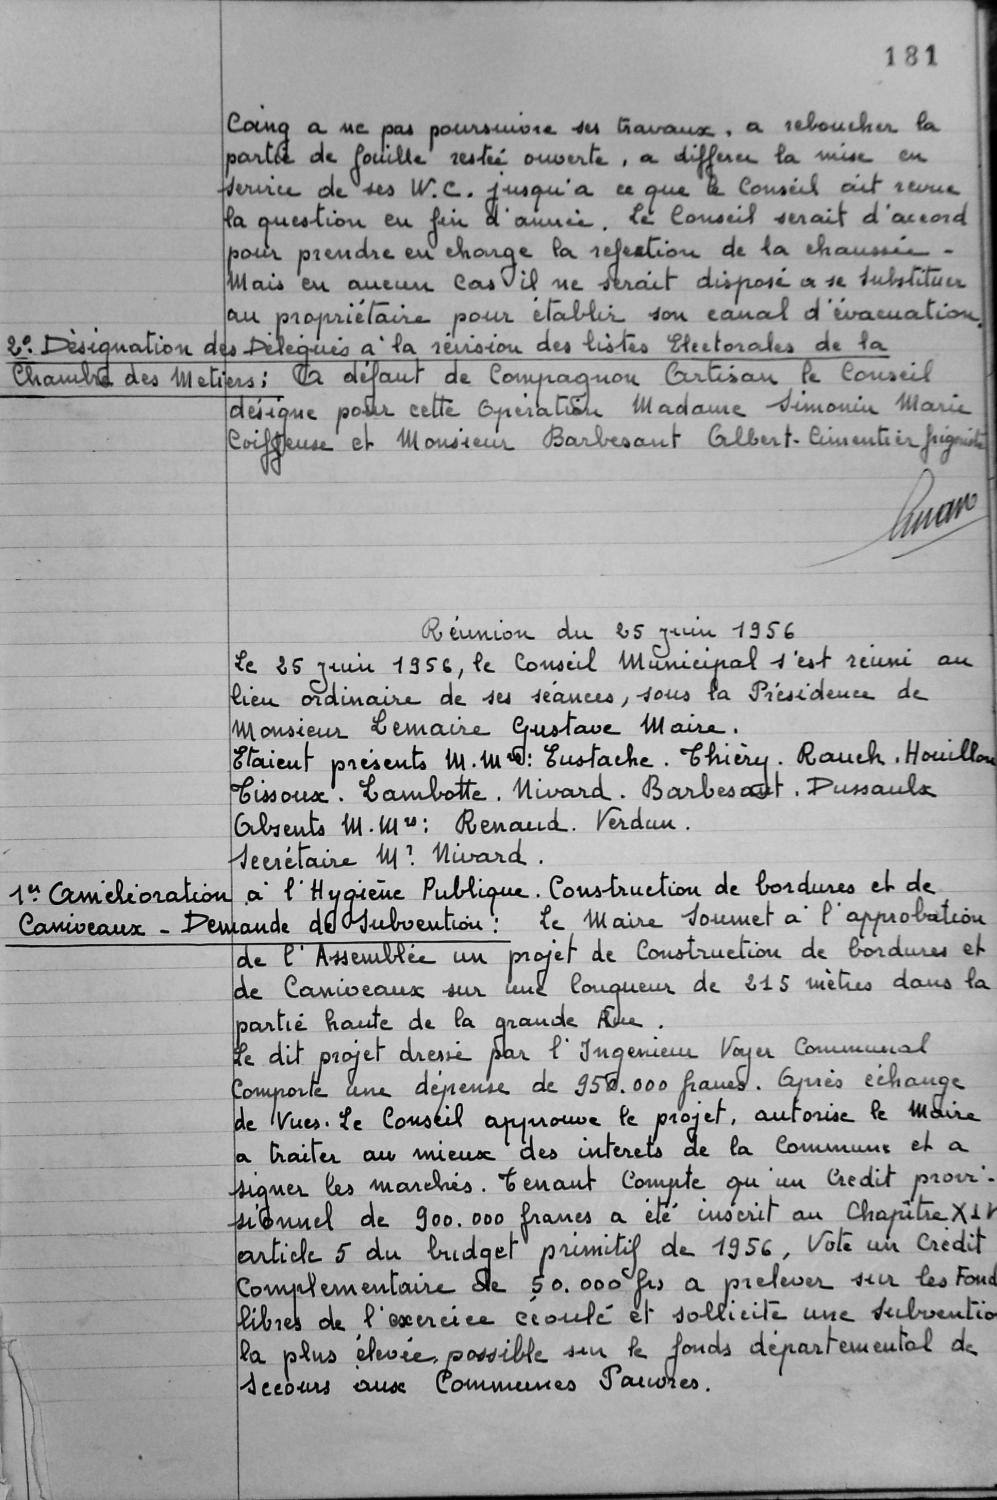 181
Coing a ne pas poursuivre ses travaux, a reboucher la
partie de fouille restée ouverte, a differer la mise en
service de ses W.C. jusqu'a ce que le Conseil ait revue
la question en fin d'année. Le Conseil serait d'accord
pour prendre en charge la refection de la chaussée -
Mais en aucun Cas il ne serait disposé a se substituer
au propriétaire pour établir son canal d'évacuation.
2°. Désignation des Délégués à la révision des listes Electorales de la
Chambre des Metiers: A défaut de Compagnon Artisan le Conseil
désigne pour cette Opération Madame Simonin Marie
Coiffeuse et Monsieur Barbesant Albert - Cimentier
Réunion du 25 juin 1956
Le 25 juin 1956, le Conseil Municipal s'est réuni au
lieu ordinaire de ses séances, sous la Présidence de
Monsieur Lemaire Gustave Maire.
Etaient présents M.Mrs: Eustache. Thiéry. Rauch. Houillon
Tissoux. Lambotte. Nivard. Barbesant. Dussaulx
Absents M.Mrs: Renaud. Verdun.
Secrétaire Mr Nivard.
1er Amélioration à l'Hygiène Publique. Construction de bordures et de
Caniveaux - Demande de Subvention: Le Maire Soumet à l'approbation
de l'Assemblée un projet de Construction de bordures et
de Caniveaux sur une longueur de 215 mètres dans la
partie haute de la grande Rue.
Le dit projet dressé par l'Ingenieur Voyer Communal
Comporte une dépense de 950.000 francs. Après échange
de Vues. Le Conseil approuve le projet, autorise le Maire
a traiter au mieux des interets de la Commune et a
signer les marchés. Tenant Compte qu'un Credit provi-
sionnel de 900.000 francs a été inscrit au Chapître XIV
article 5 du budget primitif de 1956, Vote un Crédit
Complementaire de 50.000 frs a prelever sur les Fond
libres de l'exercice écoulé et sollicite une Subventio
la plus élevée possible sur le fonds départemental de
Secours aux Communes Pauvres.